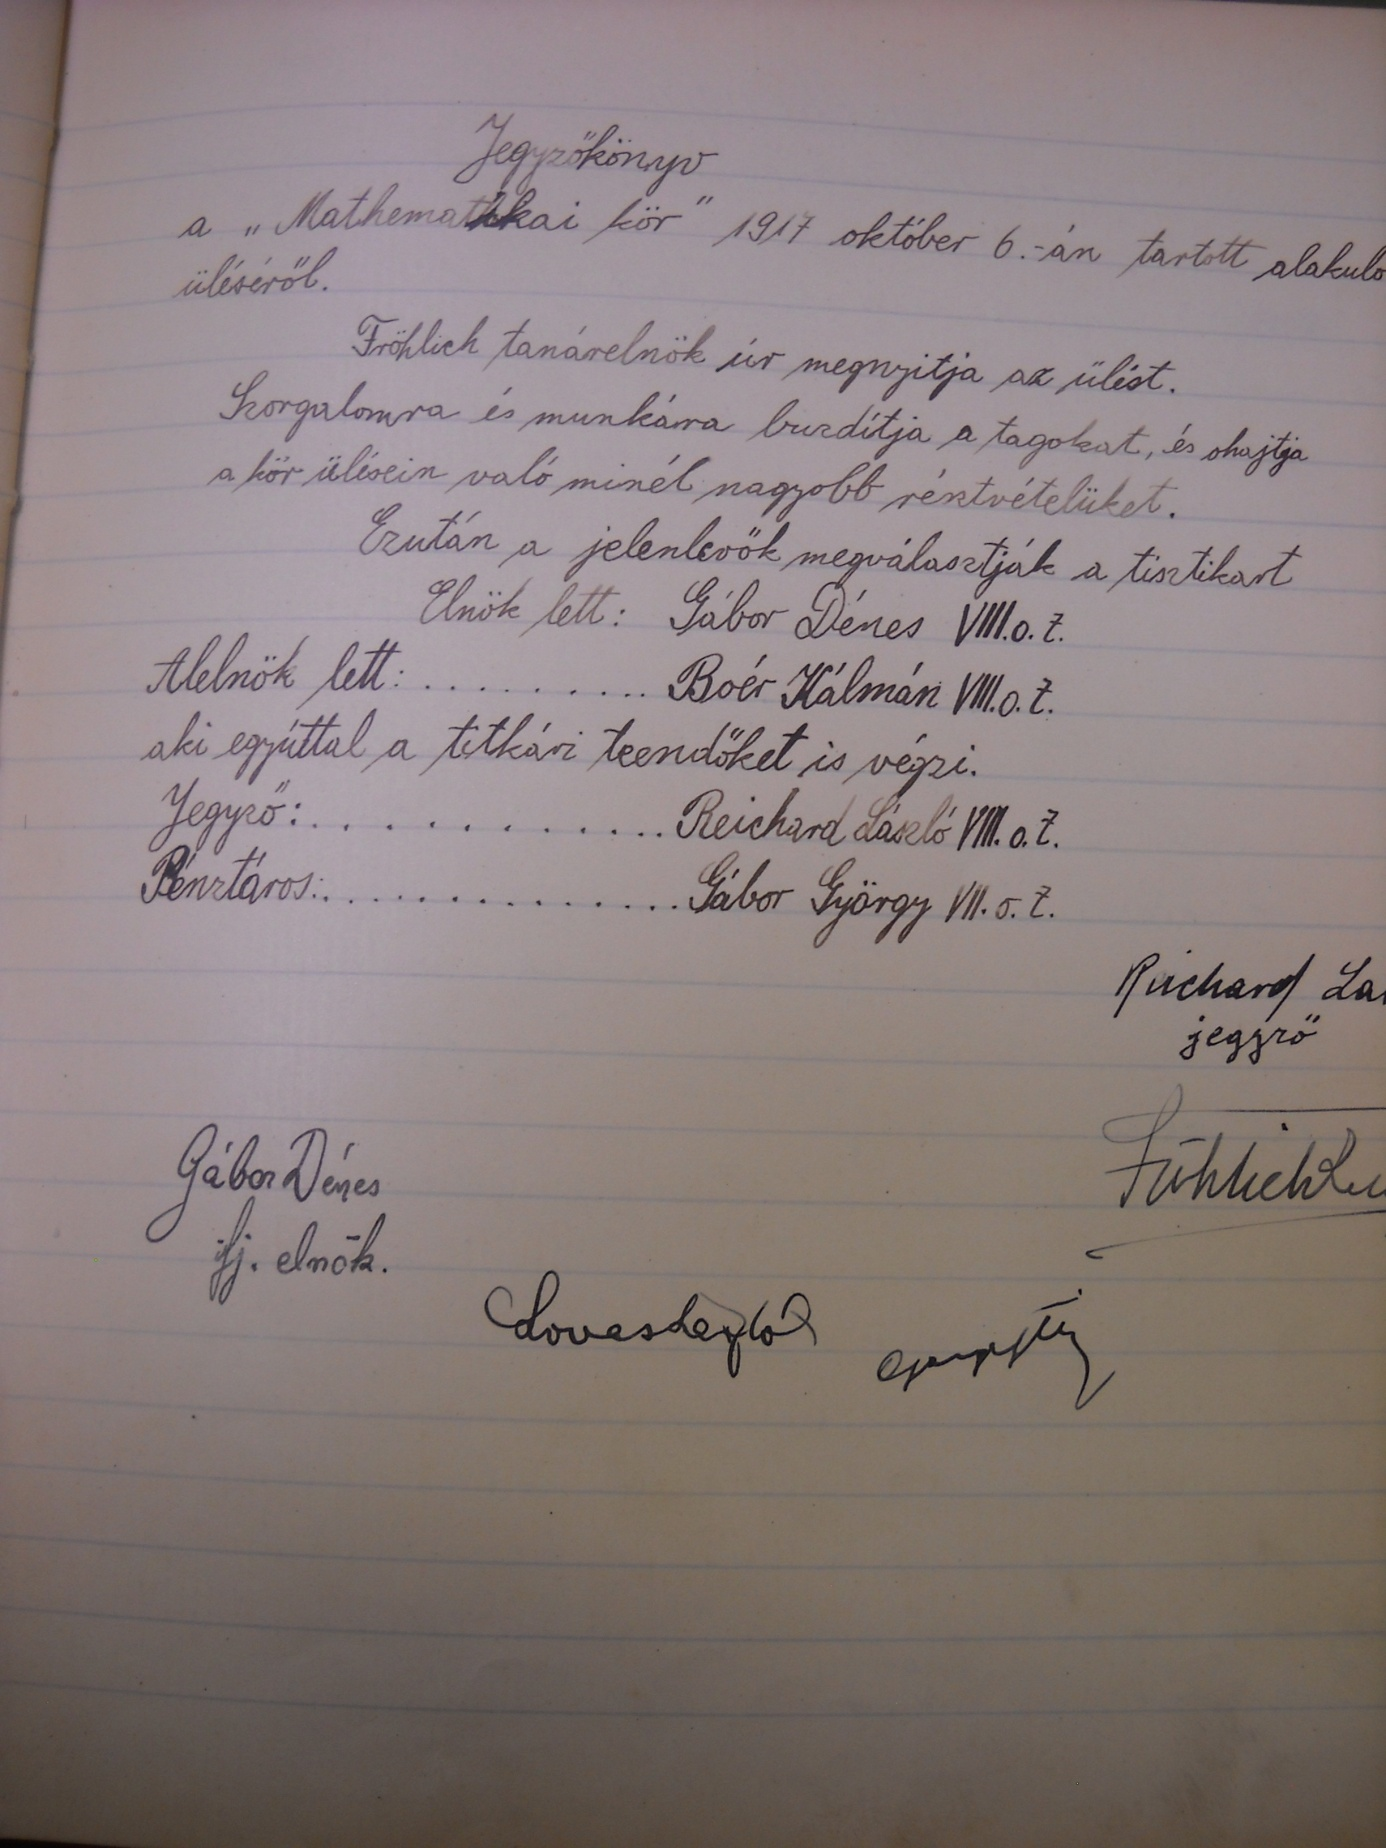 Jegyzőkönyv
a „Mathematikai kör" 1917 október 6.-án tartott alakuló
üléséről.
Fröhlich tanárelnök úr megnyitja az ülést.
Szorgalomra és munkára buzdítja a tagokat, és ohajtja
a kör ülésein való minél nagyobb résztvételüket.
Ezután a jelenlevők megválasztják a tisztikart
Elnök lett: Gábor Dénes VIII. o. t.
Alelnök lett: .......... Boér Kálmán VIII. o. t.
aki egyúttal a titkári teendőket is végzi.
Jegyző: ............. Reichard László VIII. o. t.
Pénztáros: ............... Gábor György VII. o. t.
Reichard Lá
jegyző
Gábor Dénes
Fröhlich
ifj. elnök.